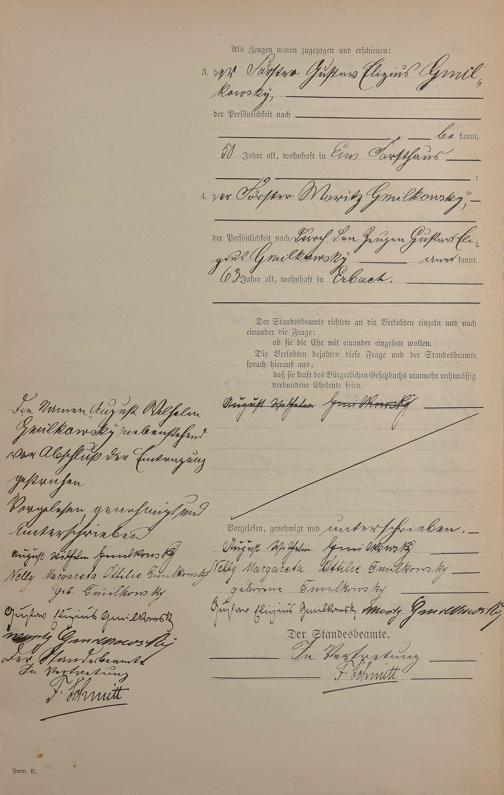 Als Zeugen waren zugezogen und erschienen:
3. der Förster Gustav Eligius Gmil-
kowsky,
der Persönlichkeit nach
be kannt,
50 Jahre alt, wohnhaft in Forsthaus
;
4. der Förster Moritz Gmilkowsky,
der Persönlichkeit nach durch den Zeugen Gustav Eli-
gius Gmilkowsky aner kannt,
63 Jahre alt, wohnhaft in Erbach.
Der Standesbeamte richtete an die Verlobten einzeln und nach
einander die Frage:
ob sie die Ehe mit einander eingehen wollen.
Die Verlobten bejahten diese Frage und der Standesbeamte
sprach hierauf aus,
daß sie kraft des Bürgerlichen Gesetzbuchs nunmehr rechtmäßig
verbundene Eheleute seien.
August Wilhelm Gmilkowsky
Vorgelesen, genehmigt und unterschrieben.
August Wilhelm Gmilkowsky
Nelly Margareta Ottilie Gmilkowsky
geborene Gmilkowsky
Gustav Eligius Gmilkowsky Moritz Gmilkowsky
Der Standesbeamte.
In Vertretung
F. Schmitt
Die Namen "August Wilhelm
Gmilkowsky" nebenstehend
vor Abschluß der Eintragung
gestrichen.
Vorgelesen, genehmigt und
unterschrieben
August Wilhelm Gmilkowsky
Nelly Margareta Ottilie Gmilkowsky
geb. Gmilkowsky
Gustav Eligius Gmilkowsky
Moritz Gmilkowsky
Der Standesbeamte
In Vertretung
F. Schmitt
Form. B.